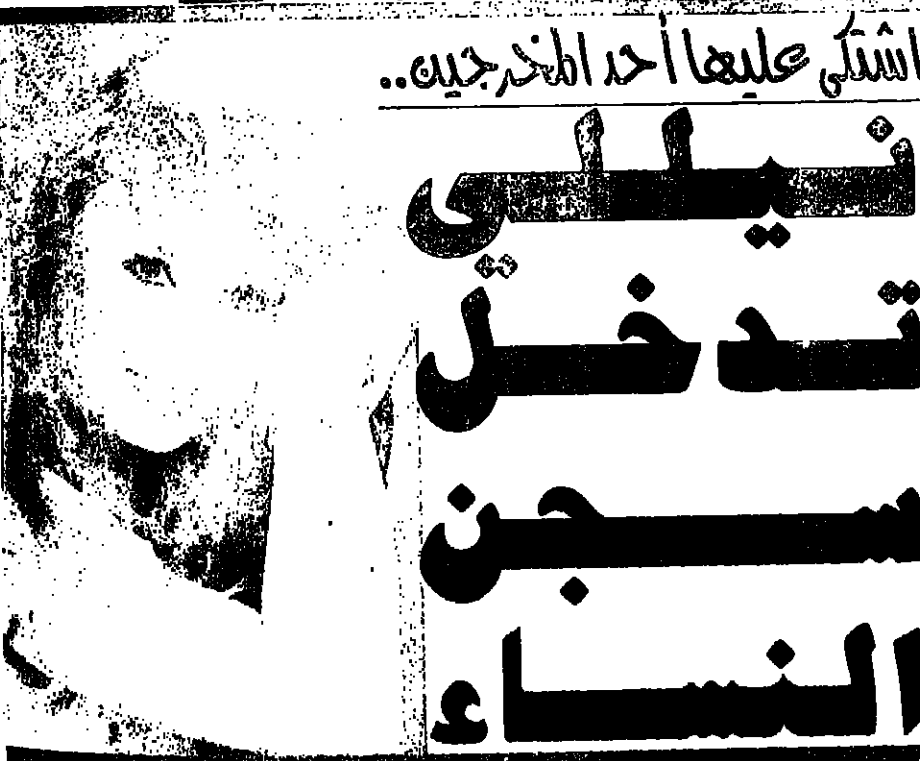 اشتكى عليها أحد المخرجين..
نيللى
تدخل
سجن
النساء